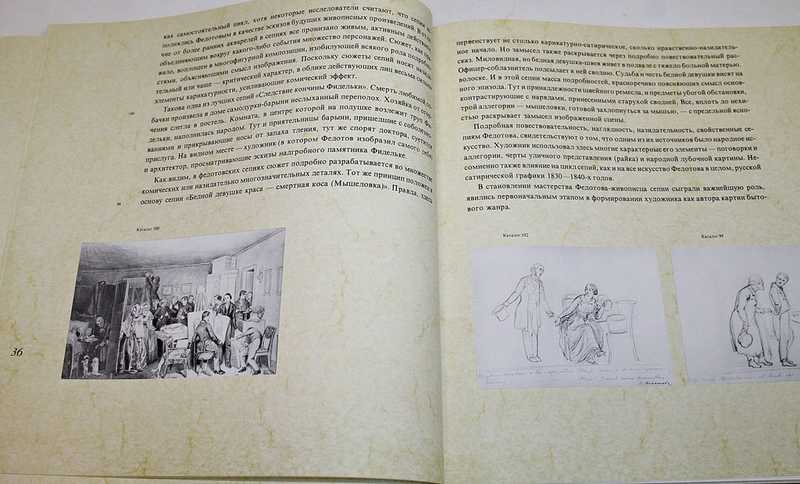 как самостоятельный цикл, хотя некоторые исследователи считают, что сепии
полнялись Федотовым в качестве эскизов будущих живописных произведений.
чие от более ранних акварелей в сепиях все пронизано живым, активным действием,
объединяющим вокруг какого-либо события множество персонажей. Сюжет, как
вило, воплощен в многофигурной композиции, изобилующей всякого рода подробно-
стями, объясняющими смысл изображения. Поскольку сюжеты сепий носят
тельный или чаще — критический характер, в облике действующих лиц весьма сильны
элементы карикатурности, усиливающие комический эффект.
Такова одна из лучших сепий «Следствие кончины Фидельки». Смерть любимой
бачки произвела в доме самодурки-барыни неслыханный переполох. Хозяйка от огор-
чения слегла в постель. Комната, в центре которой на подушке возлежит труп Фи-
дельки, наполнилась народом. Тут и приятельницы барыни, пришедшие с соболезно-
ваниями и прикрывающие носы от запаха тления, тут же спорят доктора, суетится
прислуга. На видном месте — художник (в котором Федотов изобразил самого себя)
и архитектор, просматривающие эскизы надгробного памятника Фидельке.
Как видим, в федотовских сепиях сюжет подробно разрабатывается во множестве
комических или назидательно многозначительных деталях. Тот же принцип положен в
основу сепии «Бедной девушке краса — смертная коса (Мышеловка)». Правда, здесь
Каталог 100
36
первенствует не столько карикатурно-сатирическое, сколько нравственно-назидатель-
ное начало. Но замысел также раскрывается через подробно повествовательный рас-
сказ. Миловидная, но бедная девушка-швея живет в подвале с тяжело больной матерью.
Офицер-соблазнитель подсылает к ней сводню. Судьба и честь бедной девушки висят на
волоске. И в этой сепии масса подробностей, красноречиво поясняющих смысл основ-
ного эпизода. Тут и принадлежности швейного ремесла, и предметы убогой обстановки,
контрастирующие с нарядами, принесенными старухой сводней. Все, вплоть до нехи-
трой аллегории — мышеловки, готовой захлопнуться за мышью, — с предельной ясно-
стью раскрывает замысел изображенной сцены.
Подробная повествовательность, наглядность, назидательность, свойственные се-
пиям Федотова, свидетельствуют о том, что одним из их источников было народное ис-
кусство. Художник использовал здесь многие характерные его элементы — поговорки и
аллегории, черты уличного представления (райка) и народной лубочной картины. Не-
сомненно также влияние на цикл сепий, как и на все искусство Федотова в целом, русской
сатирической графики 1830—1840-х годов.
В становлении мастерства Федотова-живописца сепии сыграли важнейшую роль,
явились первоначальным этапом в формировании художника как автора картин быто-
вого жанра.
Каталог 102
Каталог 99